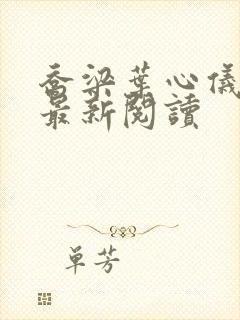 喬梁葉心儀
最新閱讀
單芳